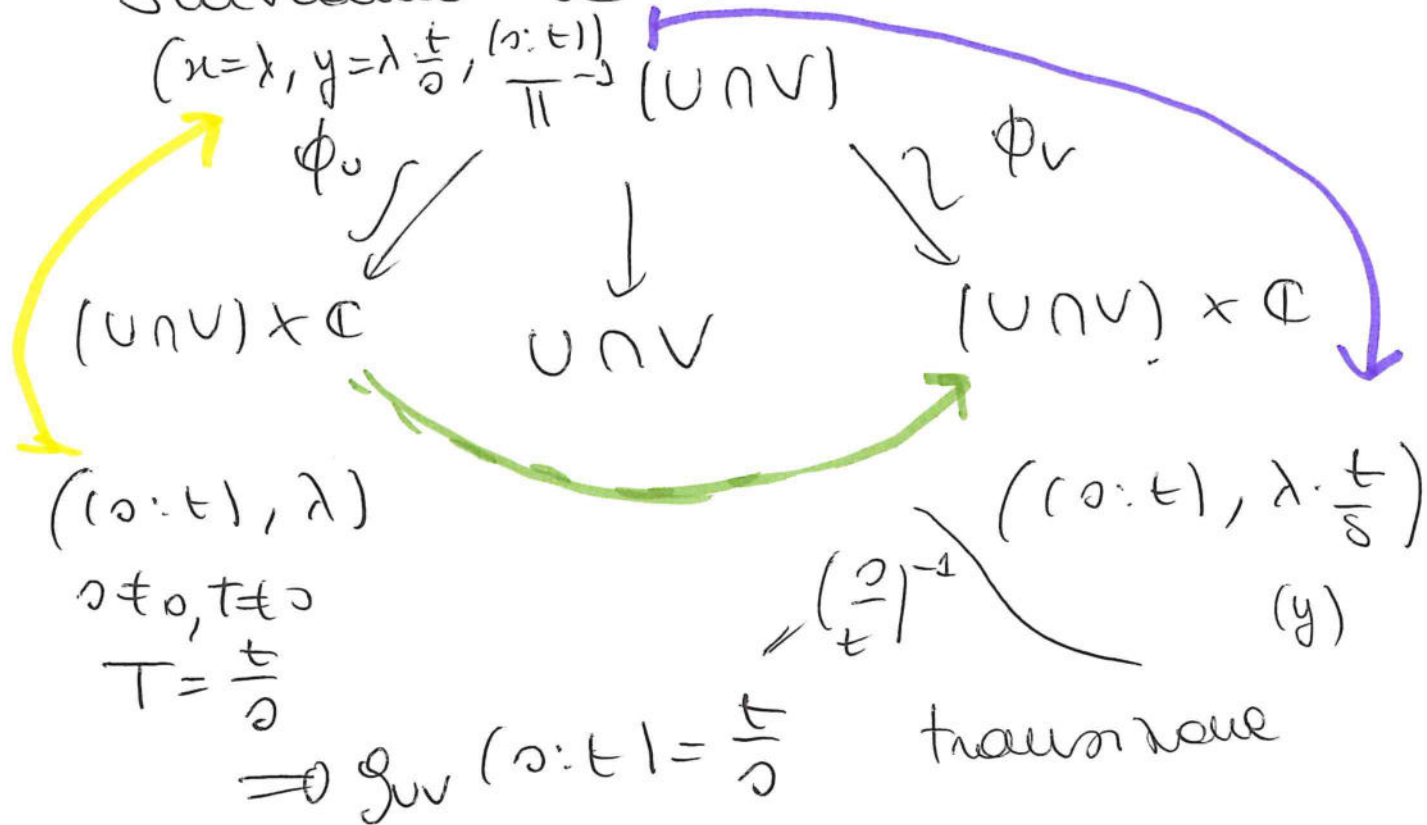 (x=λ, y=λ·t/s, (s:t)) π⁻¹(U∩V)
ϕ_U ϕ_V
(U∩V)×ℂ U∩V (U∩V)×ℂ
((s:t), λ) ((s:t), λ·t/s)
s≠0, t≠0 (y)
T = t/s
= (s/t)⁻¹
⇒ g_UV (s:t) = t/s transizione